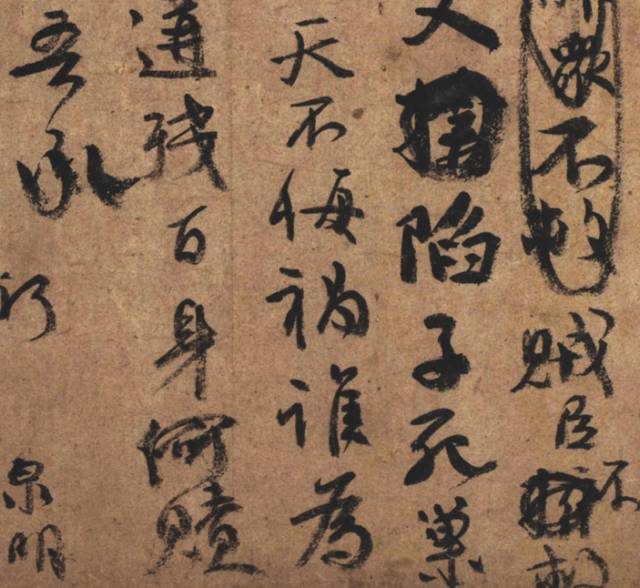 不救賊臣不救
父陷子死巢
天不悔禍誰為
遘殘百身何贖
吾承
泉明